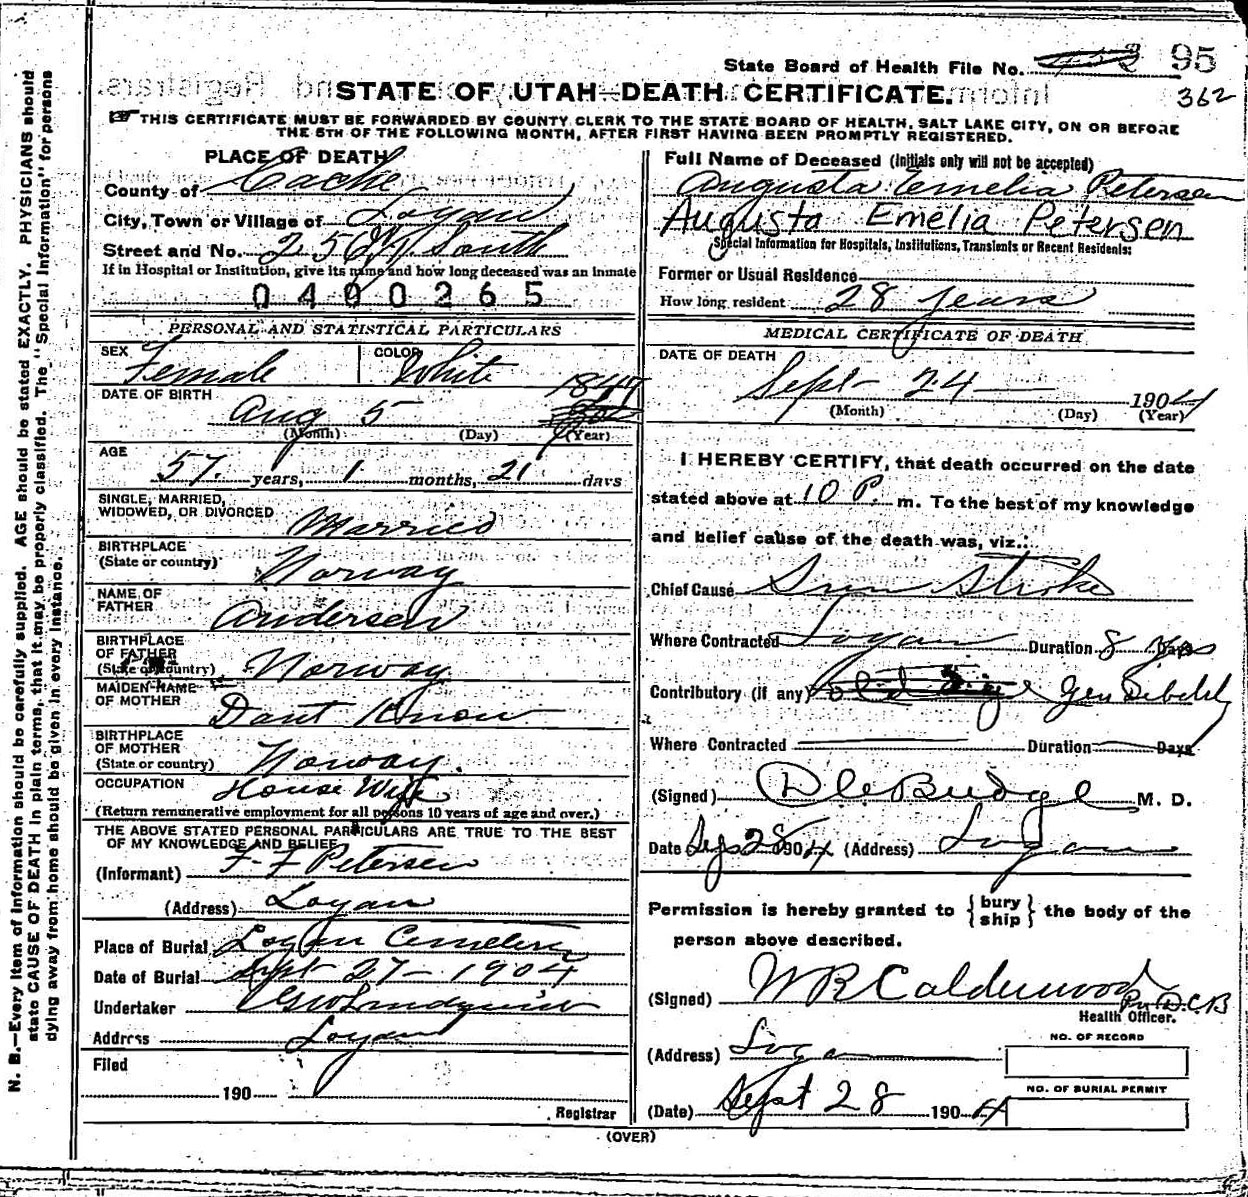 State Board of Health File No. 95
362
STATE OF UTAH—DEATH CERTIFICATE.
THIS CERTIFICATE MUST BE FORWARDED BY COUNTY CLERK TO THE STATE BOARD OF HEALTH, SALT LAKE CITY, ON OR BEFORE
THE 5TH OF THE FOLLOWING MONTH, AFTER FIRST HAVING BEEN PROMPTLY REGISTERED.
PLACE OF DEATH
County of Cache
City, Town or Village of Logan
Street and No. 25 South
If in Hospital or Institution, give its name and how long deceased was an inmate
0400265
Full Name of Deceased (Initials only will not be accepted)
Augusta Emelia Petersen
Augusta Emelia Petersen
Special Information for Hospitals, Institutions, Transients or Recent Residents:
Former or Usual Residence
How long resident 28 years
PERSONAL AND STATISTICAL PARTICULARS
SEX Female COLOR White
DATE OF BIRTH Aug 5 1847
(Month) (Day) (Year)
AGE
57 years, 1 months, 21 days
SINGLE, MARRIED,
WIDOWED, OR DIVORCED Married
BIRTHPLACE
(State or country) Norway
NAME OF
FATHER Andersen
BIRTHPLACE
OF FATHER
(State or country) Norway
MAIDEN NAME
OF MOTHER Dont Know
BIRTHPLACE
OF MOTHER
(State or country) Norway.
OCCUPATION House Wife
(Return remunerative employment for all persons 10 years of age and over.)
THE ABOVE STATED PERSONAL PARTICULARS ARE TRUE TO THE BEST
OF MY KNOWLEDGE AND BELIEF
(Informant) F. F. Petersen
(Address) Logan
Place of Burial Logan Cemetery
Date of Burial Sept 27 - 1904
Undertaker
Address Logan
Filed
190
Registrar
MEDICAL CERTIFICATE OF DEATH
DATE OF DEATH
Sept - 24 1904
(Month) (Day) (Year)
I HEREBY CERTIFY, that death occurred on the date
stated above at 10 P. m. To the best of my knowledge
and belief cause of the death was, viz.:
Chief Cause Sun Stroke
Where Contracted Logan Duration 8 Days
Contributory (if any) Gen Debility
Where Contracted Duration Days
(Signed) D C Budge M. D.
Date 28 1904 (Address) Logan
Permission is hereby granted to { bury ship } the body of the
person above described.
(Signed) W R Calderwood Per D.C.B
Health Officer.
(Address) Logan
NO. OF RECORD
NO. OF BURIAL PERMIT
(Date) Sept 28 1904
(OVER)
N. B.—Every item of information should be carefully supplied. AGE should be stated EXACTLY. PHYSICIANS should
state CAUSE OF DEATH in plain terms, that it may be properly classified. The "Special Information" for persons
dying away from home should be given in every instance.